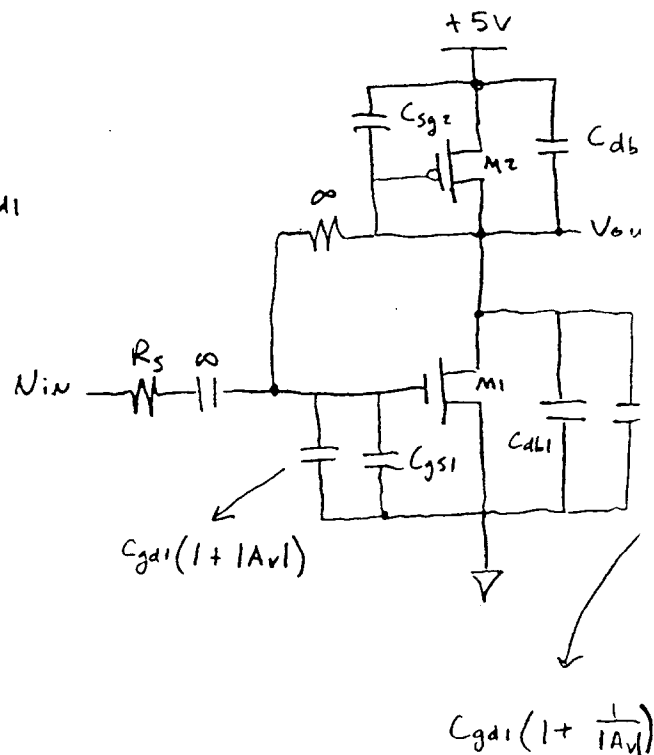 +5V
Csg2
M2
Cdb
∞
Vou
Rs ∞
Nin
M1
Cgs1
Cdb1
Cgd1(1 + |Av|)
Cgd1(1 + 1/|Av|)